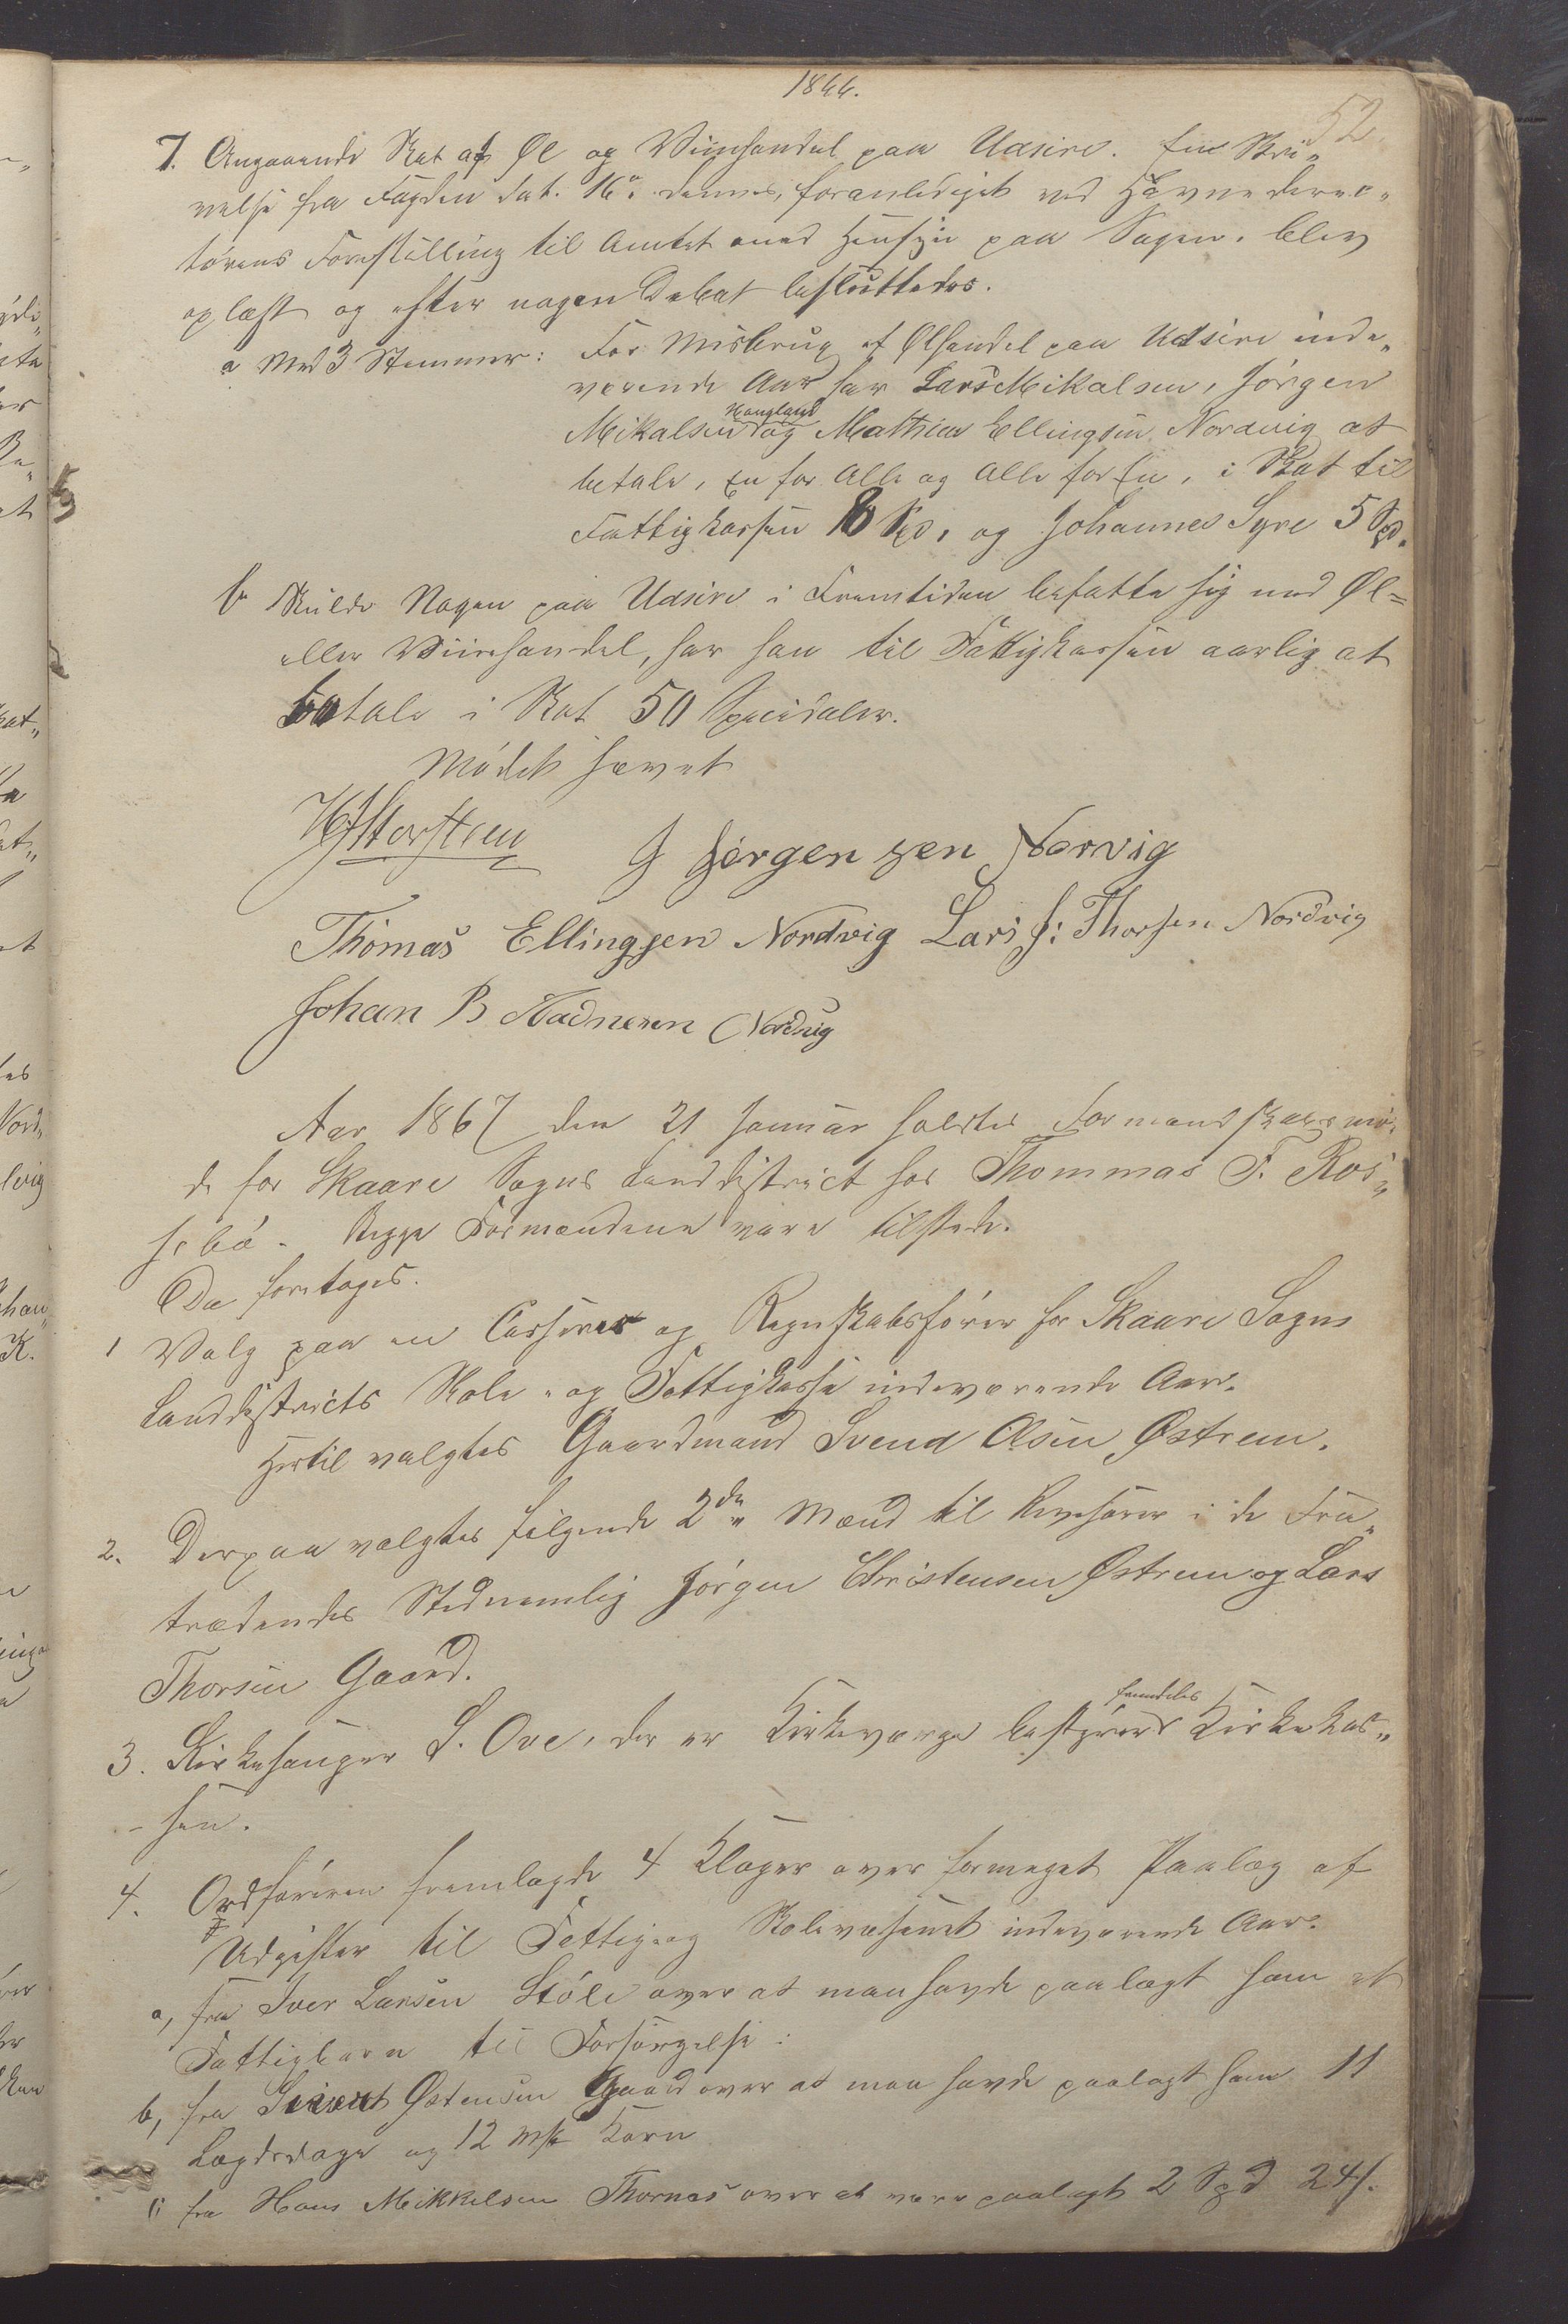 1866.
52
7. Angaaende Skat af Øl og Viinhandel paa Udsire. En Skri„
velse fra Fogden dat. 16de dennes, foranlediget ved Havnedirec„
törens Forestilling til Amtet med Hensyn paa Sagen, blev
oplæst og efter nogen Debat besluttedes.
a Med 3 Stemmer: For Misbrug af Ølhandel paa Udsire inde„
værende Aar har Lars Mikalsen, Jörgen
Haugland
Mikalsen og Mathias Ellingsen Nordvig at
betale, En for Alle og Alle for En, i Skat til
Fattigkassen 18 Spd, og Johannes Syre 5 Spd.
b Skulde Nogen paa Udsire i Fremtiden befatte sig med Øl=
eller Viinhandel, har han til Fattigkassen aarlig at
betale i Skat 50 Speciedaler.
Mödet hævet
J Jørgensen Norvig
Thomas Ellingsen Nordvig Lars J: Thorsen Nordvig
Johan B Aadnesen Nordvig
Aar 1867 den 21 Januar holdtes Formandskabsmö„
de for Skaare Sogns Landdistrict hos Thommas T. Ros„
sebö. Begge Formændene vare tilstede.
Da foretoges.
1 Valg paa en Casserer og Regnskabsförer for Skaare Sogns
Landdistricts Skole- og Fattigkasse indeværende Aar.
Hertil valgtes Gaardmand Svend Olsen Østrem.
2. Derpaa valgtes fölgende 2de Mænd til Revisorer i de Fra„
trædendes Sted nemlig Jörgen Christensen Østrem og Lars
Thorsen Gaard.
fremdeles
3. Kirkesanger S. Ove, der er Kirkeværge bestyrer Kirkekas„
-sen.
4. Ordföreren fremlagde 4 Klager over formeget Paalæg af
Udgifter til Fattig og Skolevæsenet indeværende Aar.
a, fra Iver Larsen Stöle over at man havde paalagt ham et
Fattigbarn til Forsörgelse:
b, fra Sivert Østensen Gaard over at man havde paalagt ham 11
Lægdsdage og 12 mk Korn
c; fra Hans Mikkelsen Thornes over at være paalagt 2 Spd 24 s.